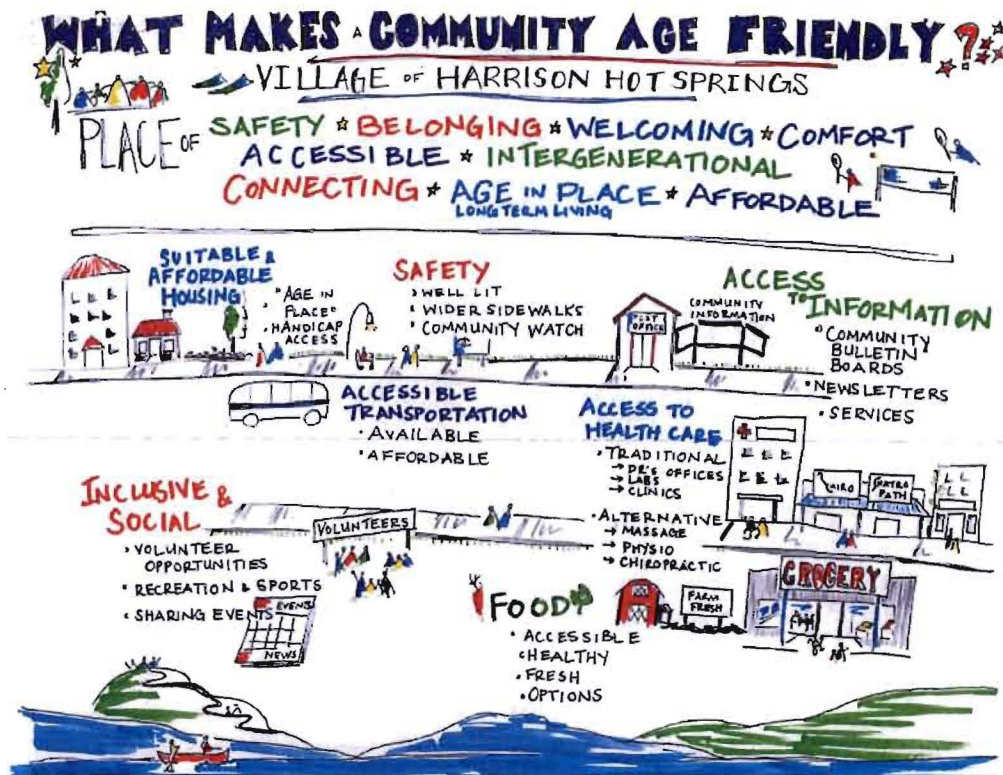 WHAT MAKES A COMMUNITY AGE FRIENDLY?
VILLAGE OF HARRISON HOT SPRINGS
PLACE OF SAFETY * BELONGING * WELCOMING * COMFORT
ACCESSIBLE * INTERGENERATIONAL
CONNECTING * AGE IN PLACE * AFFORDABLE
LONG TERM LIVING
SUITABLE &
AFFORDABLE
HOUSING
• "AGE IN
PLACE"
• HANDICAP
ACCESS
SAFETY
• WELL LIT
• WIDER SIDEWALKS
• COMMUNITY WATCH
POST
OFFICE
COMMUNITY
INFORMATION
ACCESS
TO INFORMATION
• COMMUNITY
BULLETIN
BOARDS
• NEWSLETTERS
• SERVICES
ACCESSIBLE
TRANSPORTATION
• AVAILABLE
• AFFORDABLE
ACCESS TO
HEALTH CARE
• TRADITIONAL
→ DR'S OFFICES
→ LABS
→ CLINICS
• ALTERNATIVE
→ MASSAGE
→ PHYSIO
→ CHIROPRACTIC
CHIRO
PATH
INCLUSIVE &
SOCIAL
• VOLUNTEER
OPPORTUNITIES
• RECREATION & SPORTS
• SHARING EVENTS
VOLUNTEERS
EVENTS
NEWS
FOOD
• ACCESSIBLE
• HEALTHY
• FRESH
• OPTIONS
FARM
FRESH
GROCERY